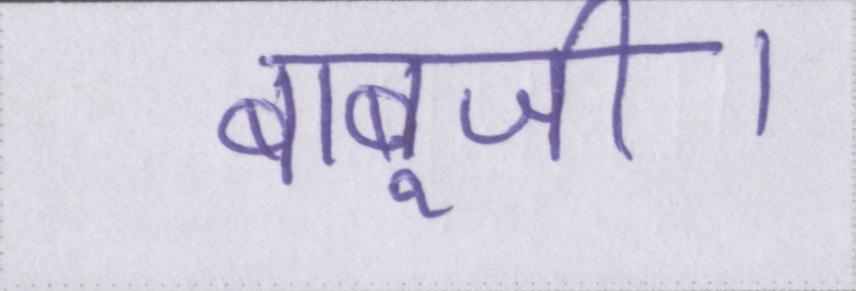 बाबूजी।